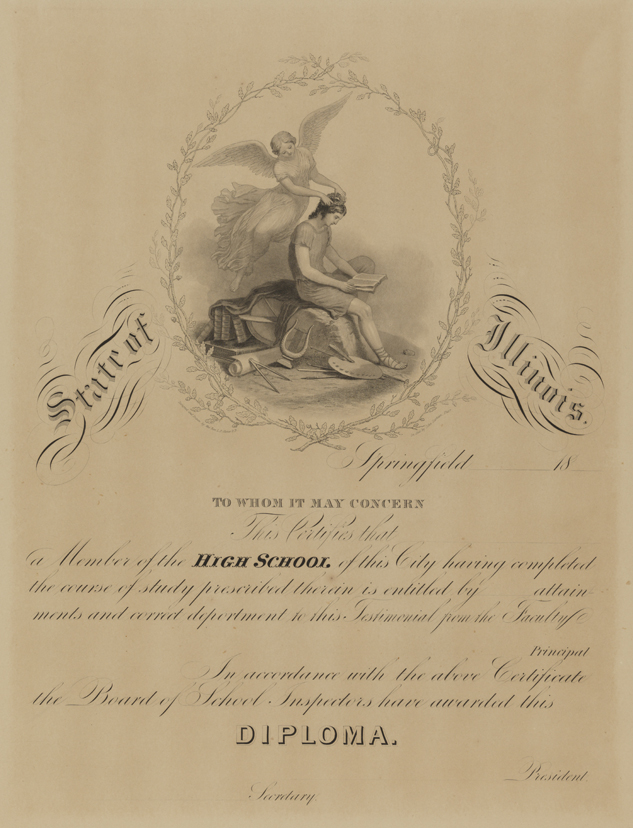 State of Illinois.
Springfield 18
TO WHOM IT MAY CONCERN
This Certifies that
a Member of the HIGH SCHOOL of this City having completed
the course of study prescribed therein is entitled by attain-
ments and correct deportment to this Testimonial from the Faculty
Principal
In accordance with the above Certificate
the Board of School Inspectors have awarded this
DIPLOMA.
President
Secretary